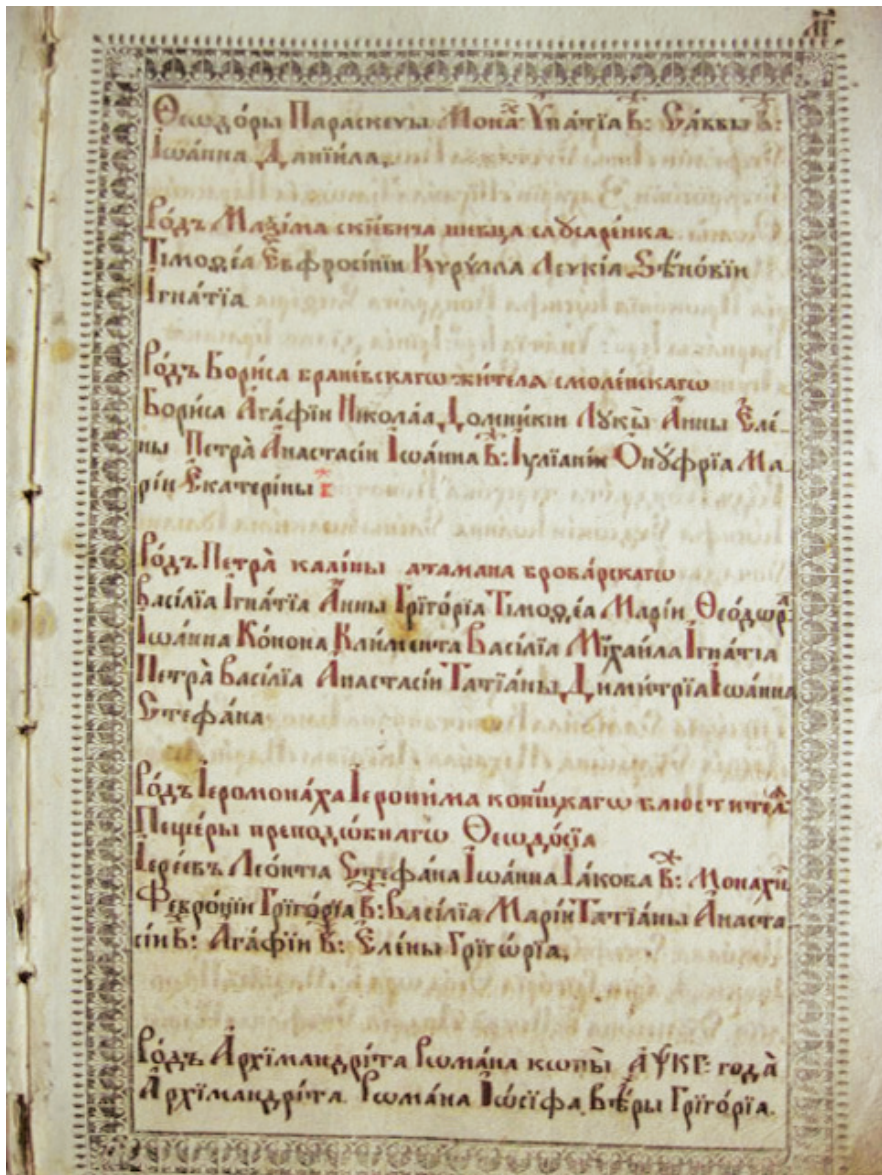 Ѳеѡдо́ры Параскеѵы Мона́х Ѵпа́тїа в҃: Са́ввы в҃:
Іѡа́нна Данїи́ла.
Ро́дъ Маѯі́ма шевца слꙋсаре́нка
Тімоѳе́а Еѵфросі́нїи Курі́лла Леукі́а Ѕѣно́вїи
Ігна́тїа
Ро́дъ Бори́са жи́телѧ смоле́нскагѡ
Бори́са Ага́фїи Никола́а Домники́и Лꙋкы̀ А҆́нны Еле́-
ны Петра̀ Анастасі́и Іѡа́нна в҃: Іуліані́и Онꙋ́фрїа Ма-
рі́и Екатері́ны в҃
Ро́дъ Петра̀ калі́ны атамана брова́рскагѡ
Васі́лїа Ігна́тїа А҆́нны Грїго́рїа Тімоѳе́а Марі́и Ѳео́дѡр
Іѡа́нна Ко́нона Кли́мента Васі́лїа Мїхаи́ла Ігна́тїа
Петра̀ Васі́лїа Анастасі́и Татїа́ны Дими́трїа Іѡа́нна
Стефа́на
Ро́дъ Іеромона́ха Іерони́ма блюстите́л
Пещеры преподо́бнагѡ Ѳеѡдо́сїа
Іере́евъ Лео́нтїа Стефа́на Іѡа́нна Іа́кова в҃: Монахи
Февро́нїи Грїго́рїа в҃: Васі́лїа Марі́и Татїа́ны Анаста
сі́и в҃: Ага́фїи в҃: Еле́ны Грїго́рїа.
Ро́дъ Архїмандрі́та Рѡма́на кѡпы̀ ҂АѰКГ: года̀
Архїмандрі́та Рѡма́на Іѡ́сїфа Вѣ́ры Грїго́рїа.